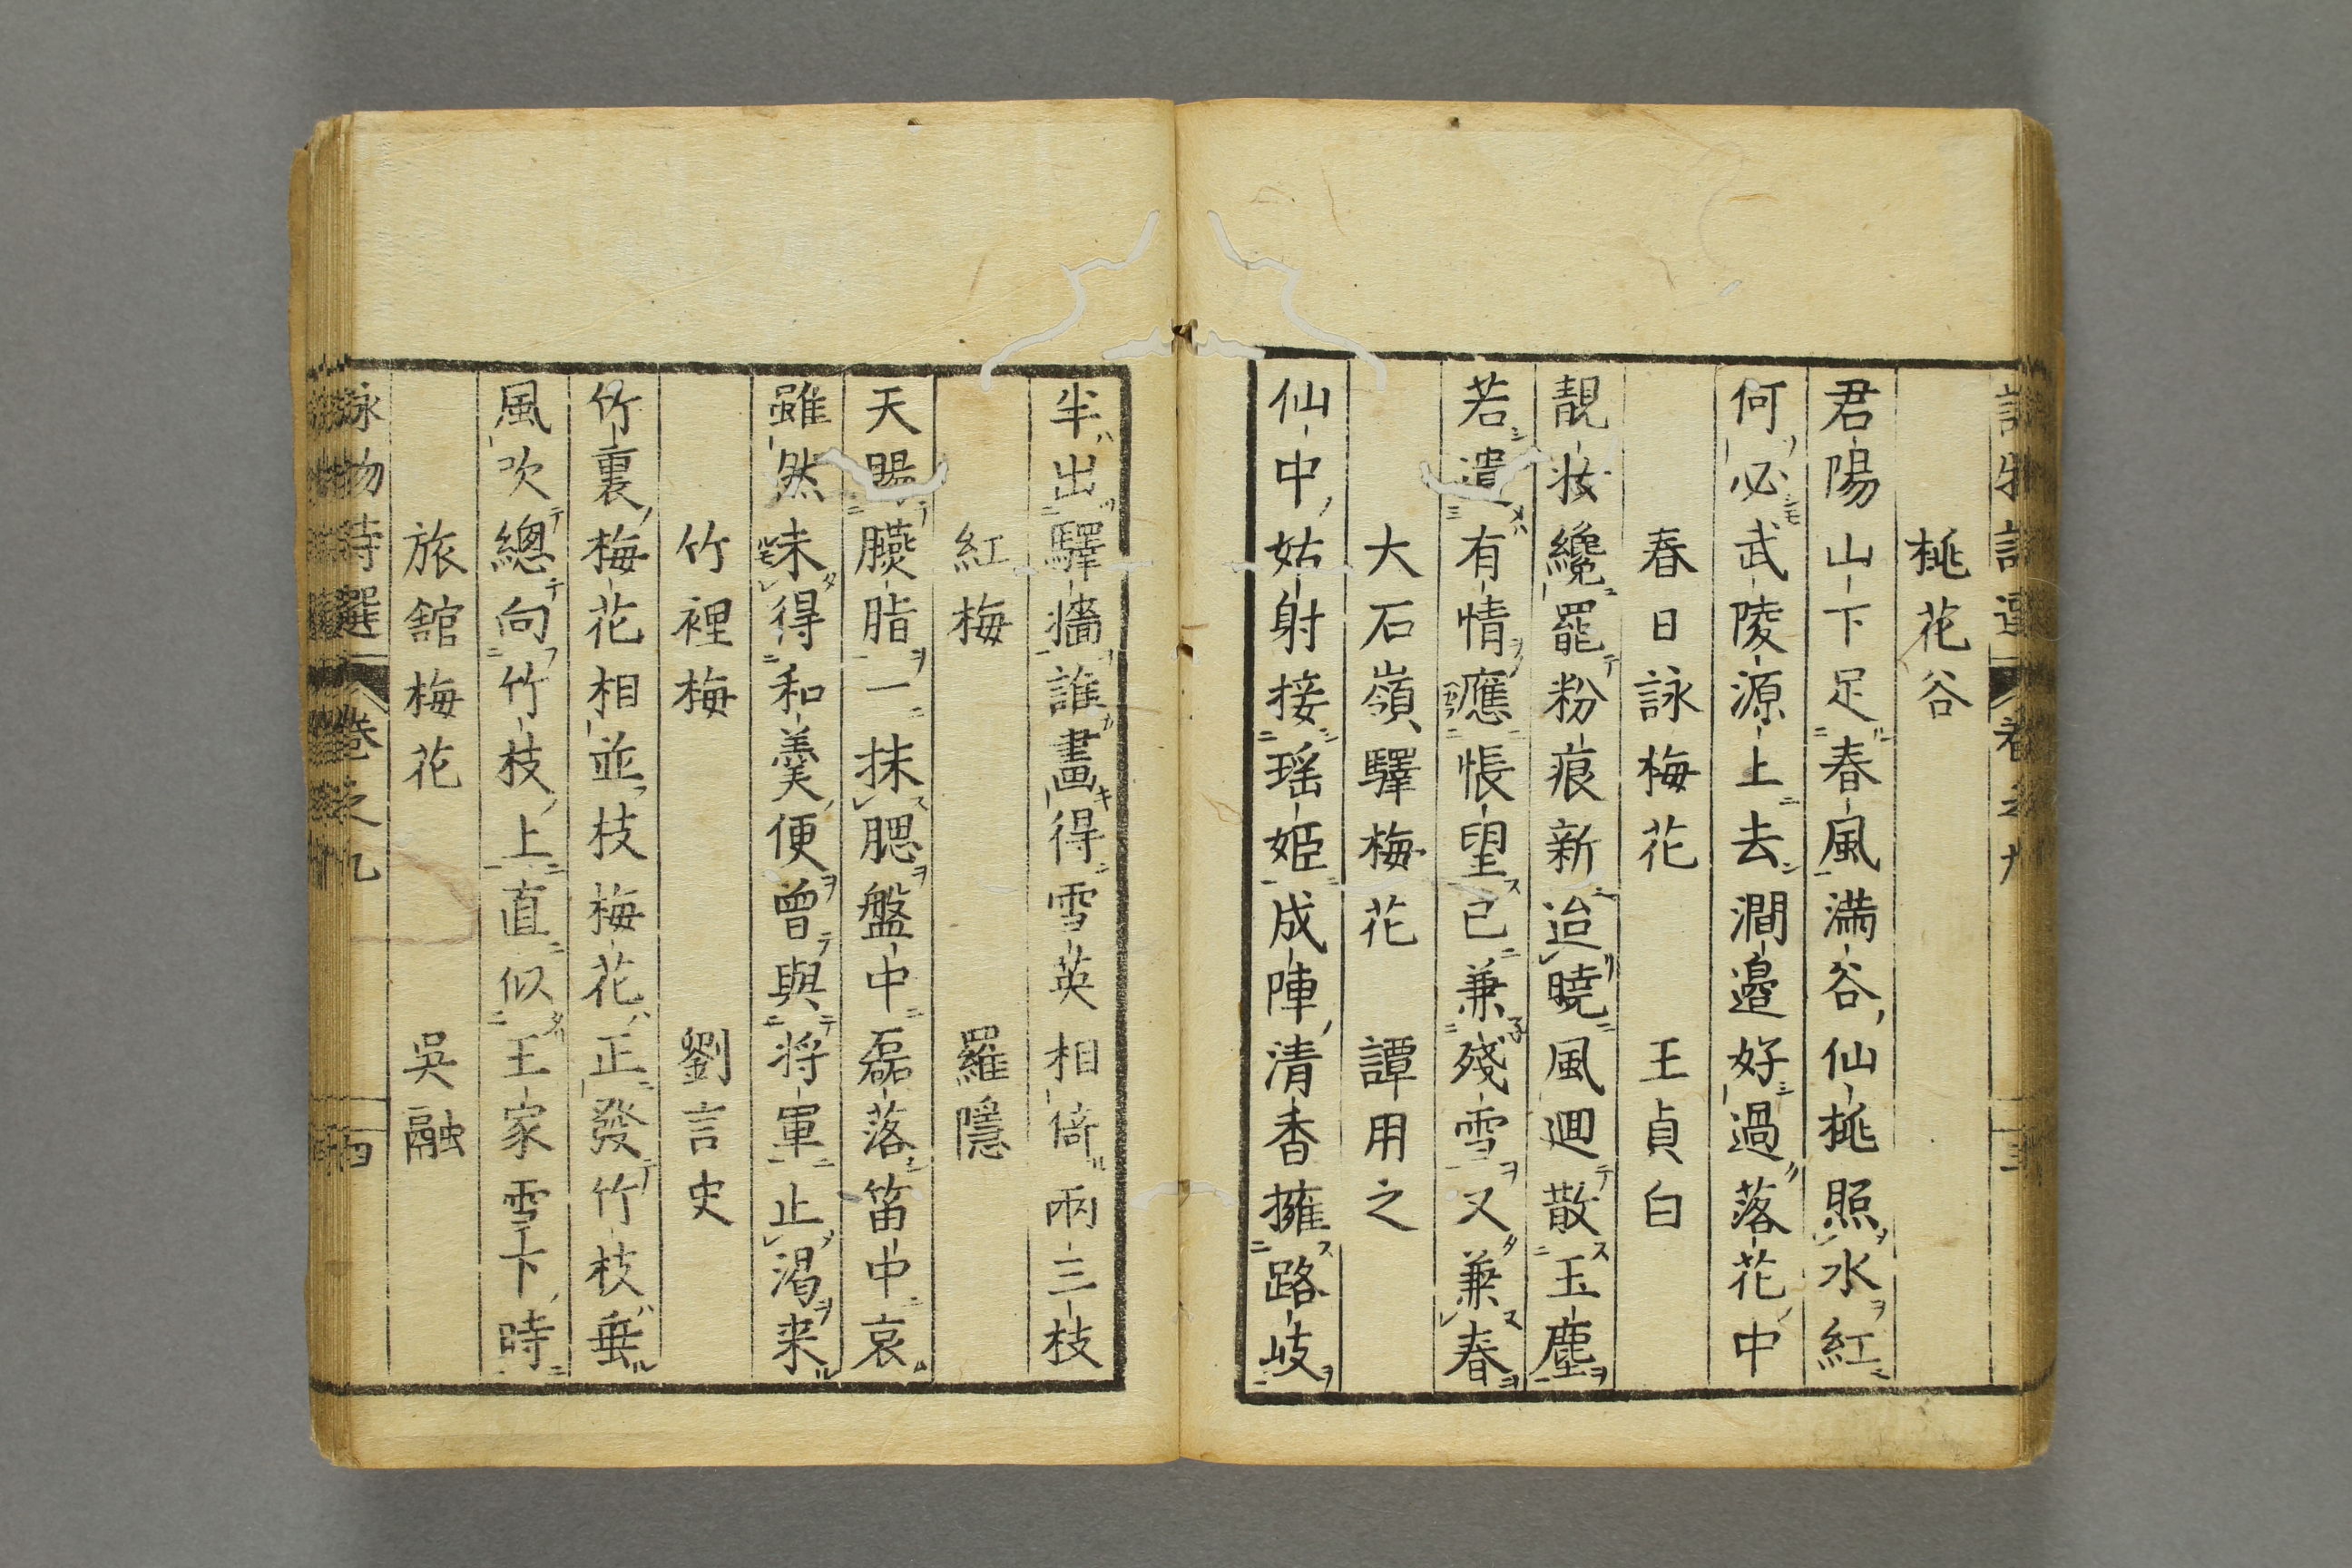 桃花谷
君陽山下足春風満谷仙桃照水紅
何必武陵源上去澗邉好過落花中
春日詠梅花 王貞白
靚妝纔罷粉痕新迨曉風廻散玉塵
若遣有情應悵望已兼殘雪又兼春
大石嶺驛梅花 譚用之
仙中姑射接瑶姫成陣清香擁路岐
半出驛牆誰畫得雪英相倚兩三枝
紅梅 羅隱
天賜臙脂一抹腮盤中磊落笛中哀
雖然未得和羹便曾與将軍止渇来
竹裡梅 劉言史
竹裏梅花相並枝梅花正發竹枝垂
風吹總向竹枝上直似王家雪下時
旅舘梅花 吳融
詠物詩選 卷之九 四